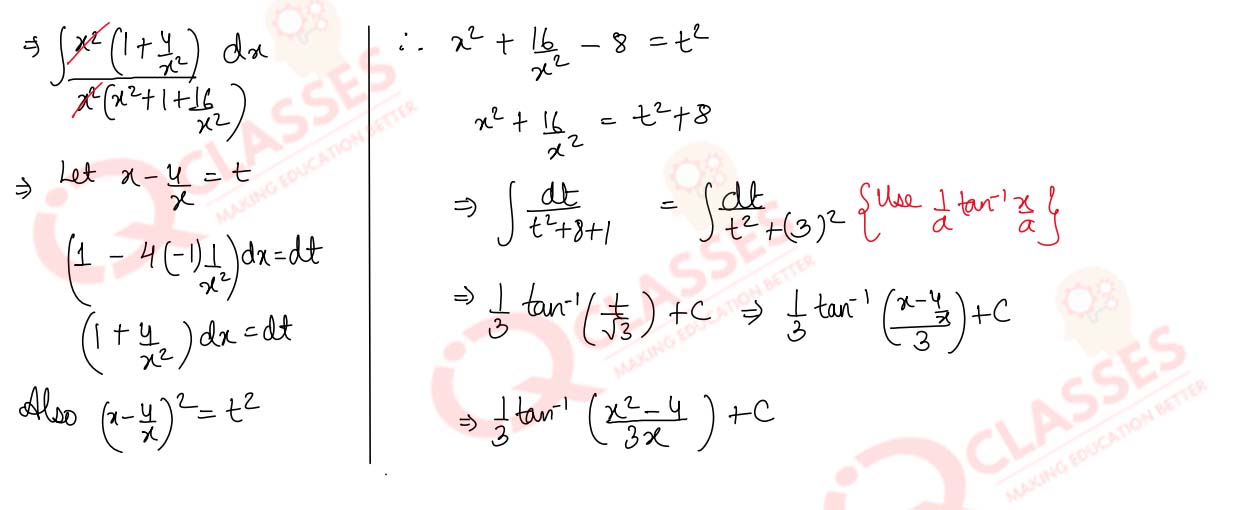 ⇒ ∫ x²(1 + 4/x²) dx / x²(x² + 1 + 16/x²)
⇒ Let x - 4/x = t
(1 - 4(-1) 1/x²) dx = dt
(1 + 4/x²) dx = dt
Also (x - 4/x)² = t²
∴ x² + 16/x² - 8 = t²
x² + 16/x² = t² + 8
⇒ ∫ dt/(t² + 8 + 1) = ∫ dt/(t² + (3)²) {Use 1/a tan⁻¹ x/a}
⇒ 1/3 tan⁻¹ (t/√3) + C ⇒ 1/3 tan⁻¹ ((x - 4/x)/3) + C
⇒ 1/3 tan⁻¹ ((x² - 4)/3x) + C
CLASSES
MAKING EDUCATION BETTER
CLASSES
MAKING EDUCATION BETTER
CLASSES
MAKING EDUCATION BETTER